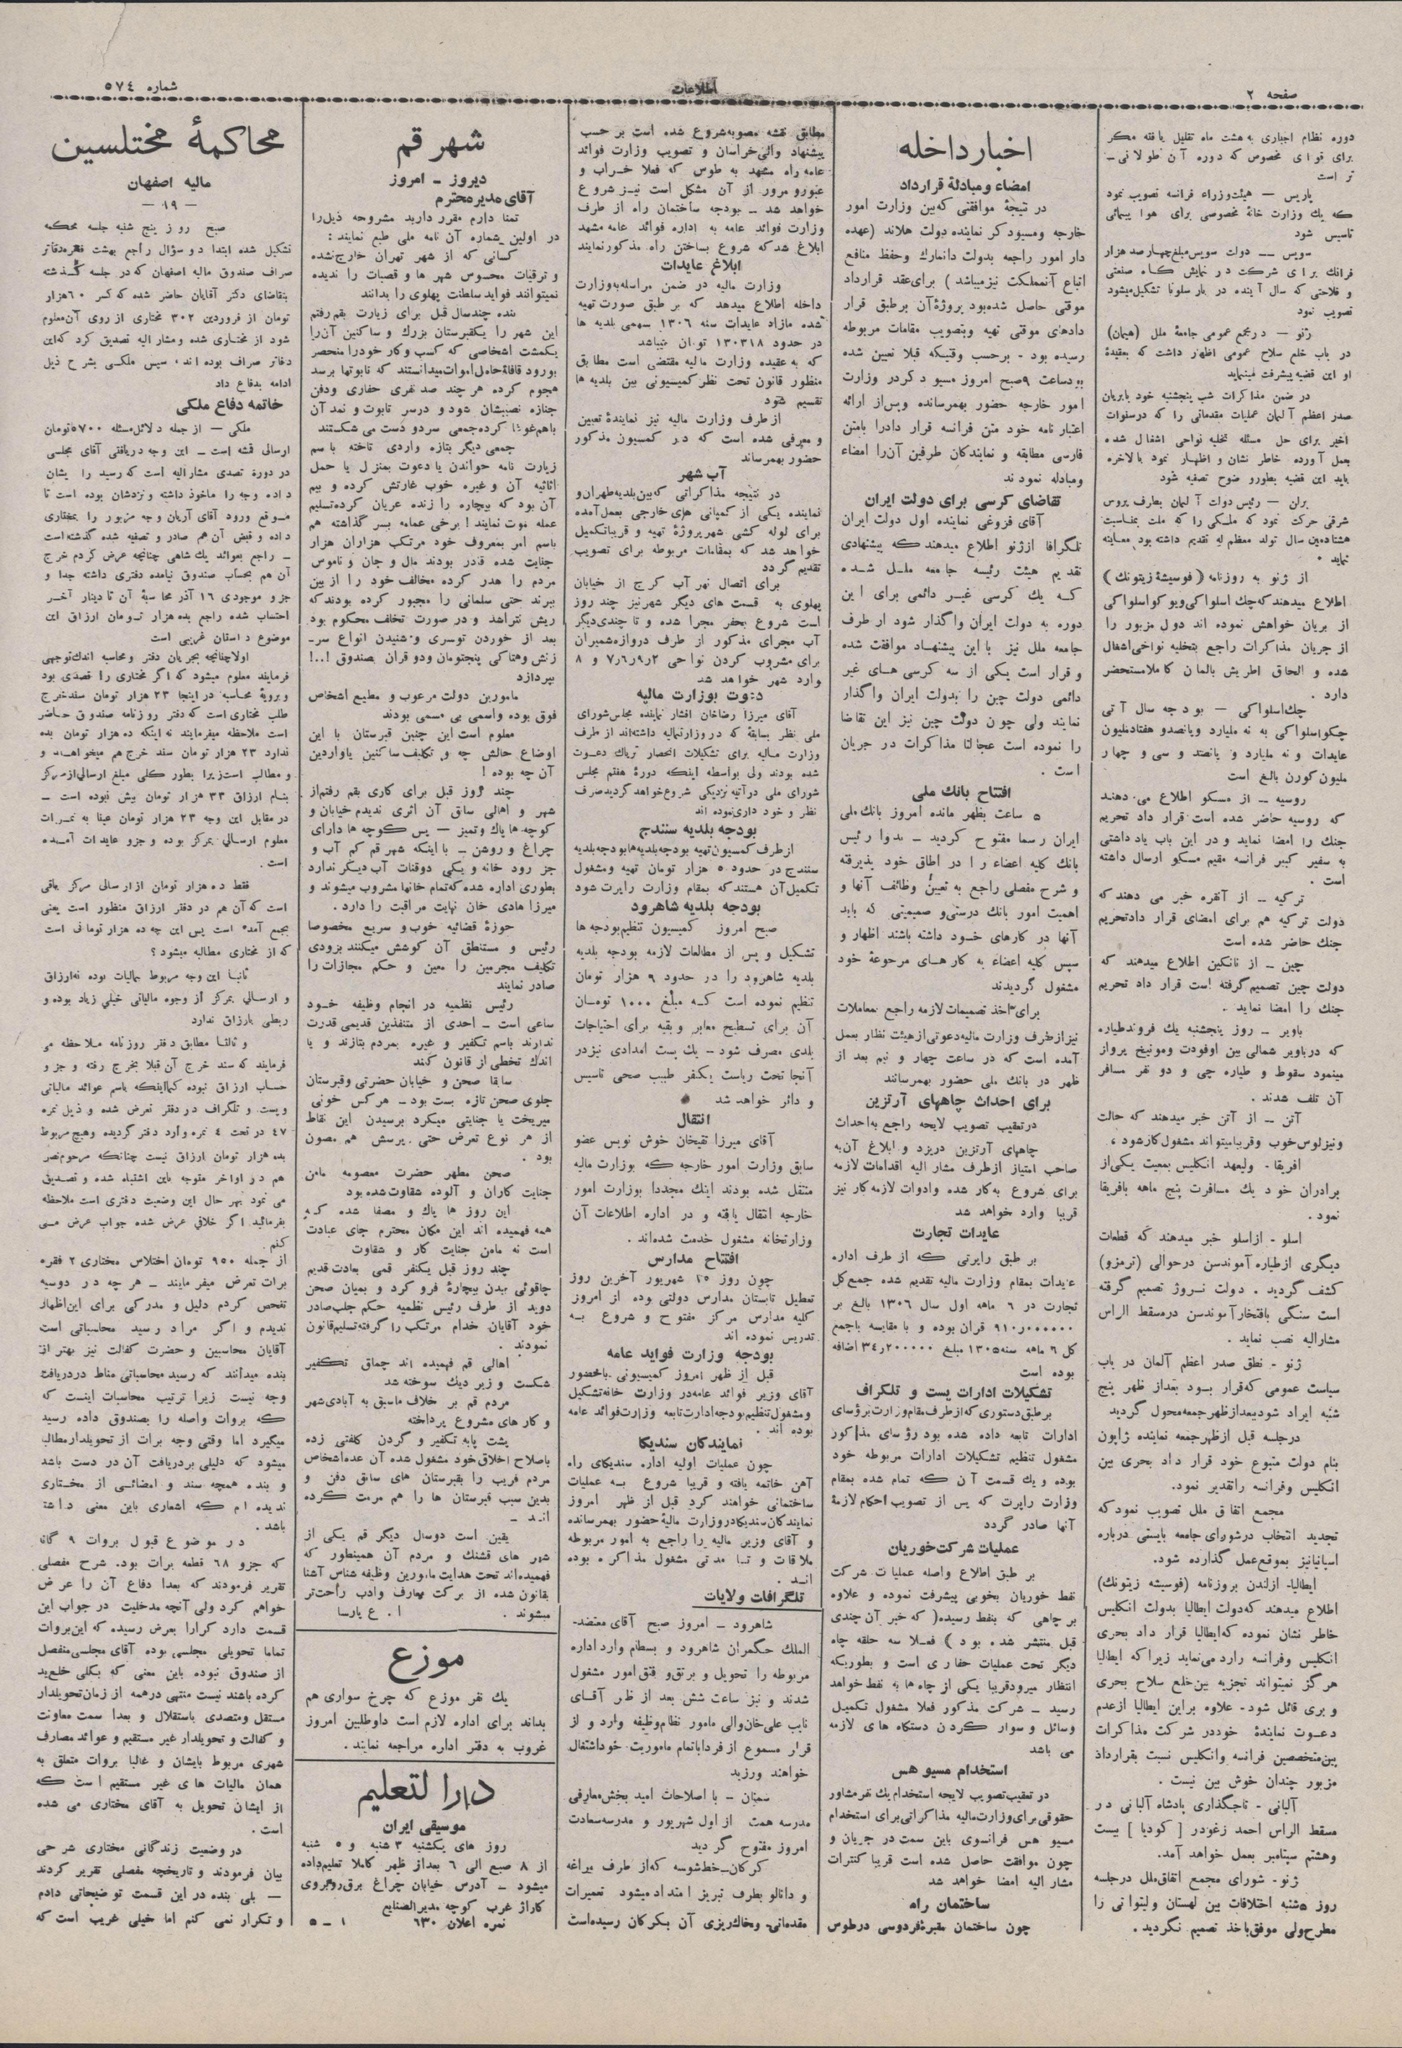 صفحه ۲
اطلاعات
شماره ۵۷٤
دوره نظام اجباری به هشت ماه تقلیل یافته مگر
برای قوای مخصوص که دوره آن طولانی‌ـ
تر است
پاریس — هیئت وزراء فرانسه تصویب نمود
که یك وزارت خانۀ مخصوصی برای هوا پیمائی
تاسیس شود
سویس — دولت سویس مبلغ چهار صد هزار
فرانك برای شرکت در نمایش گاه صنعتی
و فلاحتی که سال آینده در بارسلونا تشکیل میشود
تصویب نمود
ژنو — در مجمع عمومی جامعۀ ملل (هیمان)
در باب خلع سلاح عمومی اظهار داشت که بعقیدۀ
او این قضیه پیشرفت مینماید
در ضمن مذاکرات شب پنجشنبه خود با بریان
صدر اعظم آلمان عملیات مقدماتی را که در سنوات
اخیر برای حل مسئله تخلیه نواحی اشغال شده
بعمل آورده خاطر نشان و اظهار نمود بالاخره
باید این قضیه بطور و ضوح تصفیه شود
برلن — رئیس دولت آلمان بطرف پروس
شرقی حرکت نمود که ملکی را که ملت بمناسبت
هشتادمین سال تولد معظم له تقدیم داشته بود معاینه
نماید .
از ژنو به روزنامه (فوسیشۀ زیتونك)
اطلاع میدهند که چك اسلواکی و یوگو اسلواکی
از بریان خواهش نموده اند دول مزبور را
از جریان مذاکرات راجع بتخلیه نواحی اشغال
شده و الحاق اطریش بالمان کاملا مستحضر
دارد .
چك اسلواکی — بودجه سال آتی
چکو اسلواکی به نه ملیارد و پانصدو هفتاد ملیون
عایدات و نه ملیارد و پانصد و سی و چهار
ملیون کورن بالغ است
روسیه — از مسکو اطلاع می دهند
که روسیه حاضر شده است قرار داد تحریم
جنك را امضا نماید و در این باب یاد داشتی
به سفیر کبیر فرانسه مقیم مسکو ارسال داشته
است .
ترکیه — از آنقره خبر می دهند که
دولت ترکیه هم برای امضای قرار داد تحریم
جنك حاضر شده است
چین — از نانکین اطلاع میدهند که
دولت چین تصمیم گرفته است قرار داد تحریم
جنك را امضا نماید .
باویر — روز پنجشنبه یك فروند طیاره
که در باویر شمالی بین اوفودت و مونیخ پرواز
مینمود سقوط و طیاره چی و دو نفر مسافر
آن تلف شدند .
آتن — از آتن خبر میدهند که حالت
ونیزلوس خوب و قریبا میتواند مشغول کار شود ،
افریقا ـ ولیعهد انگلیس بمعیت یکی از
برادران خود یك مسافرت پنج ماهه بافریقا
نمود .
اسلو - از اسلو خبر میدهند که قطعات
دیگری از طیاره آموندسن در حوالی (ترمزو)
کشف گردید . دولت نروژ تصمیم گرفته
است سنگی بافتخار آموندسن در مسقط الراس
مشارالیه نصب نماید .
ژنو - نطق صدر اعظم آلمان در باب
سیاست عمومی که قرار بود بعد از ظهر پنج
شنبه ایراد شود بعد از ظهر جمعه محول گردید
در جلسه قبل از ظهر جمعه نماینده ژاپون
بنام دولت متبوع خود قرار داد بحری بین
انگلیس و فرانسه را تقدیر نمود.
مجمع اتفاق ملل تصویب نمود که
تجدید انتخاب در شورای جامعه بایستی درباره
اسپانیا نیز بموقع عمل گذارده شود.
ایطالیا- از لندن بروزنامه (فوسیشه زیتونك)
اطلاع میدهند که دولت ایطالیا بدولت انگلیس
خاطر نشان نموده که ایطالیا قرار داد بحری
انگلیس و فرانسه را رد می‌نماید زیرا که ایطالیا
هرگز نمیتواند تجزیه بین خلع سلاح بحری
و بری قائل شود - علاوه بر این ایطالیا از عدم
دعوت نمایندۀ خود در شرکت مذاکرات
بین متخصصین فرانسه و انگلیس نسبت بقرارداد
مزبور چندان خوش بین نیست .
آلبانی - تاجگذاری پادشاه آلبانی در
مسقط الراس احمد زغو در [ کودیا ] بیست
وهشتم سپتامبر بعمل خواهد آمد.
ژنو- شورای مجمع اتفاق ملل در جلسه
روز ۵ شنبه اختلافات بین لهستان و لیتوانی را
مطرح ولی موفق باخذ تصمیم نگردید .
اخبار داخله
امضاء و مبادلۀ قرارداد
در نتیجۀ موافقتی که بین وزارت امور
خارجه و مسیو دکر نماینده دولت هلاند (عهده
دار امور راجعه بدولت دانمارك و حفظ منافع
اتباع آنمملکت نیز میباشد) برای عقد قرارداد
موقتی حاصل شده بود پروژۀ آن بر طبق قرار
دادهای موقتی تهیه و بتصویب مقامات مربوطه
رسیده بود - بر حسب وقتیکه قبلا تعیین شده
بود ساعت ۹ صبح امروز مسیو دکر در وزارت
امور خارجه حضور بهمرسانده و پس از ارائه
اعتبار نامه خود متن فرانسه قرار داد را با متن
فارسی مطابقه و نمایندگان طرفین آن را امضاء
و مبادله نمودند
تقاضای کرسی برای دولت ایران
آقای فروغی نماینده اول دولت ایران
تلگرافا از ژنو اطلاع میدهند که پیشنهادی
تقدیم هیئت رئیسه جامعه ملل شده
که یك کرسی غیر دائمی برای این
دوره به دولت ایران واگذار شود از طرف
جامعه ملل نیز با این پیشنهاد موافقت شده
و قرار است یکی از سه کرسی های غیر
دائمی دولت چین را بدولت ایران واگذار
نمایند ولی چون دولت چین نیز این تقاضا
را نموده است عجالتا مذاکرات در جریان
است .
افتتاح بانك ملی
۵ ساعت بظهر مانده امروز بانك ملی
ایران رسما مفتوح گردید - بدوا رئیس
بانك کلیه اعضاء را در اطاق خود پذیرفته
و شرح مفصلی راجع به تعیین وظائف آنها و
اهمیت امور بانك درستی و صمیمیتی که باید
آنها در کارهای خود داشته باشند اظهار و
سپس کلیه اعضاء به کارهای مرجوعۀ خود
مشغول گردیدند
برای اخذ تصمیمات لازمه راجع بمعاملات
نیز از طرف وزارت مالیه دعوتی از هیئت نظار بعمل
آمده است که در ساعت چهار و نیم بعد از
ظهر در بانك ملی حضور بهمرسانند
برای احداث چاههای آرتزین
در تعقیب تصویب لایحه راجع به احداث
چاههای آرتزین در یزد و ابلاغ آن به
صاحب امتیاز از طرف مشار الیه اقدامات لازمه
برای شروع بکار شده و ادوات لازمه کار نیز
قریبا وارد خواهد شد
عایدات تجارت
بر طبق راپرتی که از طرف اداره
عایدات بمقام وزارت مالیه تقدیم شده جمع کل
تجارت در ٦ ماهه اول سال ۱۳۰٦ بالغ بر
۹۱۰٫۰۰۰۰۰۰ قران بوده و با مقایسه با جمع
کل ٦ ماهه سنه ۱۳۰۵ مبلغ ۳٤٫۲۰۰۰۰۰ اضافه
بوده است
تشکیلات ادارات پست و تلگراف
بر طبق دستوری که از طرف مقام وزارت برؤسای
ادارات تابعه داده شده بود رؤسای مذاکور
مشغول تنظیم تشکیلات ادارات مربوطه خود
بوده و یك قسمت آن که تمام شده بمقام
وزارت راپرت که پس از تصویب احکام لازمۀ
آنها صادر گردد
عملیات شرکت خوریان
بر طبق اطلاع واصله عملیات شرکت
نفط خوریان بخوبی پیشرفت نموده و علاوه
بر چاهی که بنفط رسیده( که خبر آن چندی
قبل منتشر شده بود ) فعلا سه حلقه چاه
دیگر تحت عملیات حفاری است و بطوریکه
انتظار میرود قریبا یکی از چاه ها به نفط خواهد
رسید — شرکت مذکور فعلا مشغول تکمیل
وسائل و سوار کردن دستگاه های لازمه
می باشد
استخدام مسیو هس
در تعقیب تصویب لایحه استخدام یك نفر مشاور
حقوقی برای وزارت مالیه مذاکراتی برای استخدام
مسیو هس فرانسوی باین سمت در جریان و
چون موافقت حاصل شده است قریبا کنترات
مشار الیه امضا خواهد شد
ساختمان راه
چون ساختمان مقبرۀ فردوسی در طوس
مطابق نقشه مصوبه شروع شده است بر حسب
پیشنهاد والی خراسان و تصویب وزارت فوائد
عامه راه مشهد به طوس که فعلا خراب و
عبور و مرور از آن مشکل است نیز شروع
خواهد شد ـ بودجه ساختمان راه از طرف
وزارت فوائد عامه به اداره فوائد عامه مشهد
ابلاغ شد که شروع بساختن راه مذکور نمایند
ابلاغ عایدات
وزارت مالیه در ضمن مراسله بوزارت
داخله اطلاع میدهد که بر طبق صورت تهیه
شده مازاد عایدات سنه ۱۳۰٦ سهمی بلدیه ها
در حدود ۱۳۰۳۱۸ تومان میباشد
که به عقیده وزارت مالیه مقتضی است مطابق
منظور قانون تحت نظر کمیسیونی بین بلدیه ها
تقسیم شود
از طرف وزارت مالیه نیز نمایندۀ تعیین
و معرفی شده است که در کمسیون مذکور
حضور بهمرساند
آب شهر
در نتیجه مذاکراتی که بین بلدیه طهران و
نماینده یکی از کمپانی های خارجی بعمل آمده
برای لوله کشی شهر پروژۀ تهیه و قریبا تکمیل
خواهد شد که بمقامات مربوطه برای تصویب
تقدیم گردد
برای اتصال نهر آب کرج از خیابان
پهلوی به قسمت های دیگر شهر نیز چند روز
است شروع بحفر مجرا شده و تا چندی دیگر
آب مجرای مذکور از طرف دروازه شمیران
برای مشروب کردن نواحی ۲ر۹ر۷ر٦ و ۸
وارد شهر خواهد شد
دعوت بوزارت مالیه
آقای میرزا رضاخان افشار نماینده مجلس شورای
ملی نظر بسابقه که در وزارتمالیه داشته اند از طرف
وزارت مالیه برای تشکیلات انحصار تریاك دعوت
شده بودند ولی بواسطه اینکه دورۀ هفتم مجلس
شورای ملی در آتیه نزدیکی شروع خواهد گردید صرف
نظر و خود داری نموده اند
بودجه بلدیه سنندج
از طرف کمسیون تهیه بودجه بلدیه ها بودجه بلدیه
سنندج در حدود ۵ هزار تومان تهیه و مشغول
تکمیل آن هستند که بمقام وزارت راپرت شود
بودجه بلدیه شاهرود
صبح امروز کمیسیون تنظیم بودجه ها
تشکیل و پس از مطالعات لازمه بودجه بلدیه
بلدیه شاهرود را در حدود ۹ هزار تومان
تنظیم نموده است که مبلغ ۱۰۰۰ تومان
آن برای تسطیح معابر و بقیه برای احتیاجات
بلدی مصرف شود - یك پست امدادی نیز در
آنجا تحت ریاست یکنفر طبیب صحی تاسیس
و دائر خواهد شد
انتقال
آقای میرزا تقیخان خوش نویس عضو
سابق وزارت امور خارجه که بوزارت مالیه
منتقل شده بودند اینك مجددا بوزارت امور
خارجه انتقال یافته و در اداره اطلاعات آن
وزارتخانه مشغول خدمت شده اند .
افتتاح مدارس
چون روز ۱۵ شهریور آخرین روز
تعطیل تابستان مدارس دولتی بوده از امروز
کلیه مدارس مرکز مفتوح و شروع به
تدریس نموده اند
بودجه وزارت فواید عامه
قبل از ظهر امروز کمسیونی با حضور
آقای وزیر فوائد عامه در وزارت خانه تشکیل
و مشغول تنظیم بودجه ادارات تابعه وزارت فوائد عامه
بوده اند .
نمایندگان سندیکا
چون عملیات اولیه اداره سندیکای راه
آهن خاتمه یافته و قریبا شروع به عملیات
ساختمانی خواهند کرد قبل از ظهر امروز
نمایندگان سندیکا در وزارت مالیۀ حضور بهمرسانده
و آقای وزیر مالیه را راجع به امور مربوطه
ملاقات و تا مدتی مشغول مذاکره بوده
اند .
تلگرافات ولایات
شاهرود ـ امروز صبح آقای معتضد-
الملك حکمران شاهرود و بسطام وارد اداره
مربوطه را تحویل و برتق و فتق امور مشغول
شدند و نیز ساعت شش بعد از ظهر آقای
نایب علی خان والی مامور نظام وظیفه وارد و از
قرار مسموع از فردا باتمام ماموریت خود اشتغال
خواهند ورزید
سمنان - با اصلاحات امید بخش معارفی
مدرسه همت از اول شهریور و مدرسه سعادت
امروز مفتوح گردید
گرگان-خط شوسه که از طرف میراغه
و دانالو بطرف تبریز امتداد میشود تعمیرات
مقدماتی و خاك ریزی آن بگرکان رسیده است
شهر قم
دیروز - امروز
آقای مدیر محترم
تمنا دارم مقرر دارید مشروحه ذیل را
در اولین شماره آن نامه ملی طبع نمایند :
کسانی که از شهر تهران خارج نشده
و ترقیات محسوس شهر ها و قصبات را ندیده
نمیتوانند فواید سلطنت پهلوی را بدانند
بنده چند سال قبل برای زیارت بقم رفتم
این شهر را یکقبرستان بزرك و ساکنین آن را
یکمشت اشخاصی که کسب و کار خود را منحصر
بورود قافلۀ حامل اموات میدانستند که تابوتها برسد
هجوم کرده هر چند صد نفری حفاری و دفن
جنازه نصیبشان شود و در سر تابوت و نمد آن
باهم غوغا کرده جمعی سر و دست می شکستند
جمعی دیگر بتازه واردی تاخته باسم
زیارت نامه خواندن یا دعوت بمنزل یا حمل
اثاثیه آن و غیره خوب غارتش کرده و بیم
آن بود که بیچاره را زنده عریان کرده تسلیم
عمله موت نمایند ! برخی عمامه بسر گذاشته هم
باسم امر بمعروف خود مرتکب هزاران هزار
جنایت شده قادر بودند مال و جان و ناموس
مردم را هدر کرده مخالف خود را از بین
ببرند حتی سلمانی را مجبور کرده بودند که
ریش نتراشد و در صورت تخلف محکوم بود
بعد از خوردن توسری و شنیدن انواع سر-
زنش و هتاکی پنجتومان و دو قران بصندوق !..!
بپردازد
مامورین دولت مرعوب و مطیع اشخاص
فوق بوده و اسمی بی مسمی بودند
معلوم است این چنین قبرستان با این
اوضاع حالش چه و تکلیف ساکنین یا واردین
آن چه بوده !
چند روز قبل برای کاری بقم رفتم از
شهر و اهالی سابق آن اثری ندیدم خیابان و
کوچه ها پاك و تمیز — پس کوچه ها دارای
چراغ و روشن — با اینکه شهر قم کم آب و
جز رود خانه و یکی دو قنات آب دیگر ندارد
بطوری اداره شده که تمام خانها مشروب میشوند و
میرزا هادی خان نهایت مراقبت را دارد .
حوزۀ قضائیه خوب و سریع مخصوصا
رئیس و مستنطق آن کوشش میکنند بزودی
تکلیف مجرمین را معین و حکم مجازات را
صادر نمایند
رئیس نظمیه در انجام وظیفه خود
ساعی است — احدی از متنفذین قدیمی قدرت
ندارند باسم تکفیر و غیره بمردم بتازند و یا
اندك تخطی از قانون کنند
سابقا صحن و خیابان حضرتی و قبرستان
جلوی صحن تازه بست بود - هر کس خونی
میریخت یا جنایتی میکرد برسیدن این نقاط
از هر نوع تعرض حتی پرسش هم مصون
بود .
صحن مطهر حضرت معصومه مامن
جنایت کاران و آلوده شقاوت شده بود
این روز ها پاك و مصفا شده که
همه فهمیده اند این مکان محترم جای عبادت
است نه مامن جنایت کار و شقاوت
چند روز قبل یکنفر قمی بعادت قدیم
چاقوئی ببدن بیچارۀ فرو کرد و بمیان صحن
دوید از طرف رئیس نظمیه حکم جلب صادر
خود آقایان خدام مرتکب را گرفته تسلیم قانون
نمودند .
اهالی قم فهمیده اند چماق تکفیر
شکست و زیر دیك سوخته شد
مردم قم بر خلاف ماسبق به آبادی شهر
و کار های مشروع پرداخته
پشت پابه تکفیر و گردن کلفتی زده
باصلاح اخلاق خود مشغول شده آن عده اشخاص
مردم فریب را بقبرستان های سابق دفن و
بدین سبب قبرستان ها را هم مرمت کرده
اند -
یقین است دوسال دیگر قم یکی از
شهر های قشنك و مردم آن همینطور که
فهمیده اند تحت هدایت مامورین وظیفه شناس آشنا
بقانون شده از برکت معارف و ادب راحت تر
میشوند . ا . ع پارسا
موزع
یك نفر موزع که چرخ سواری هم
بداند برای اداره لازم است داوطلبین امروز
غروب به دفتر اداره مراجعه نمایند .
دارا لتعلیم
موسیقی ایران
روز های یکشنبه ۳ شنبه و ۵ شنبه
از ۸ صبح الی ٦ بعد از ظهر کاملا تعلیم داده
میشود — آدرس خیابان چراغ برق روبروی
کاراژ غرب کوچه مدیر الصنایع
نمره اعلان ٦۳۰ ۱ – ۵
محاکمۀ مختلسین
مالیه اصفهان
— ۱۹ —
صبح روز پنج شنبه جلسه محکمه
تشکیل شده ابتدا دو سؤال راجع بهشت فقره دفاتر
صراف صندوق مالیه اصفهان که در جلسه گذشته
بتقاضای دکتر آقایان حاضر شده که کسر ٦۰ هزار
تومان از فروردین ۳۰۲ مختاری از روی آن معلوم
شود از مختاری شده و مشار الیه تصدیق کرد که این
دفاتر صراف بوده اند ، سپس ملکی بشرح ذیل
ادامه بدفاع داد
خاتمه دفاع ملکی
ملکی — از جمله دلائل مسئله ۵۷۰۰ تومان
ارسالی قمشه است ـ این وجه دریافتی آقای مجلسی
در دوره تصدی مشار الیه است که رسید را ایشان
داده وجه را ماخوذ داشته و نزدشان بوده است تا
موقع ورود آقای آریان وجه مزبور را بمختاری
داده و قبض آن هم صادر و تصفیه شده گذشته است
— راجع بعوائد یك شاهی چنانچه عرض کردم خرج
آن هم بحساب صندوق نیامده دفتری داشته جدا و
جزو موجودی ۱٦ آذر محاسبۀ آن تا دینار آخر
احتساب شده راجع بده هزار تومان ارزاق این
موضوع داستان غریبی است
اولا چنانچه بجریان دفتر و محاسبه اندك توجهی
فرمایند معلوم میشود که اگر مختاری را قصدی بود
و برویۀ محاسبه در اینجا ۲۳ هزار تومان سند خرج
طلب مختاری است که دفتر روزنامه صندوق حاضر
است ملاحظه میفرمایند نه اینکه ده هزار تومان بده
ندارد ۲۳ هزار تومان سند خرج هم میخواهد و
و مطالب است زیرا بطور کلی مبلغ ارسالی از مرکز
بنام ارزاق ۳۳ هزار تومان بیش نبوده است —
در مقابل این وجه ۲۳ هزار تومان عینا به نمرات
معلوم ارسالی بمرکز بوده و جزو عایدات آمده
است .
فقط ده هزار تومان از ارسالی مرکز باقی
است که آن هم در دفتر ارزاق منظور است یعنی
بجمع آمده است پس این چه ده هزار تومانی است
که از مختاری مطالبه میشود ؟
ثانیا این وجه مربوط بمالیات بوده نه ارزاق
و ارسالی بمرکز از وجوه مالیاتی خیلی زیاد بوده و
ربطی بارزاق ندارد
و ثالثا مطابق دفتر روزنامه ملاحظه می
فرمایند که سند خرج آن قبلا بخرج رفته و جزو
حساب ارزاق نبوده کما اینکه باسم عوائد مالیاتی
ویست و تلگراف در دفتر تعرض شده و ذیل نمره
٤۷ در تحت ٤ نمره وارد دفتر گردیده و هیچ مربوط
بده هزار تومان ارزاق نیست چنانکه مرحوم نصر
هم در اواخر متوجه باین اشتباه شده و تصدیق
می نمود بهر حال این وضعیت دفتری است ملاحظه
بفرمائید اگر خلافی عرض شده جواب عرض می
کنم .
از جمله ۹۵۰ تومان اختلاس مختاری ۲ فقره
برات تعرض میفرمایند — هر چه در دوسیه
تفحص کردم دلیل و مدرکی برای این اظهار
ندیدم و اگر مراد رسید محاسباتی است
آقایان محاسبین و حضرت کفالت نیز بهتر از
بنده میدانند که رسید محاسباتی مناط در دریافت
وجه نیست زیرا ترتیب محاسبات اینست که
که بروات واصله را بصندوق داده رسید
میگیرد اما وقتی وجه برات از تحویلدار مطالبا
میشود که دلیلی بر دریافت آن در دست باشد
و بنده همچه سند و امضائی از مختاری
ندیده ام که اشعاری باین معنی داشته
باشد .
در موضوع قبول بروات ۹ گانه
که جزو ٦۸ قطعه برات بود. شرح مفصلی
تقریر فرمودند که بعدا دفاع آن را عرض
خواهم کرد ولی آنچه مدخلیت در جواب این
قسمت دارد کرارا بعرض رسیده که این بروات
تماما تحویلی مجلسی بوده آقای مجلسی منفصل
از صندوق نبوده باین معنی که بکلی خلع ید
کرده باشند نیست منتهی در همه از زمان تحویلدار
مستقل و متصدی باستقلال و بعدا سمت معاونت
و کفالت و تحویلدار غیر مستقیم و عوائد مصارف
شهری مربوط بایشان و غالبا بروات متعلق به
همان مالیات های غیر مستقیم است که
از ایشان تحویل به آقای مختاری می شده
است .
در وضعیت زندگانی مختاری شرحی
بیان فرمودند و تاریخچه مفصلی تقریر کردند
— بلی بنده در این قسمت توضیحاتی دادم
و تکرار نمی کنم اما خیلی غریب است که